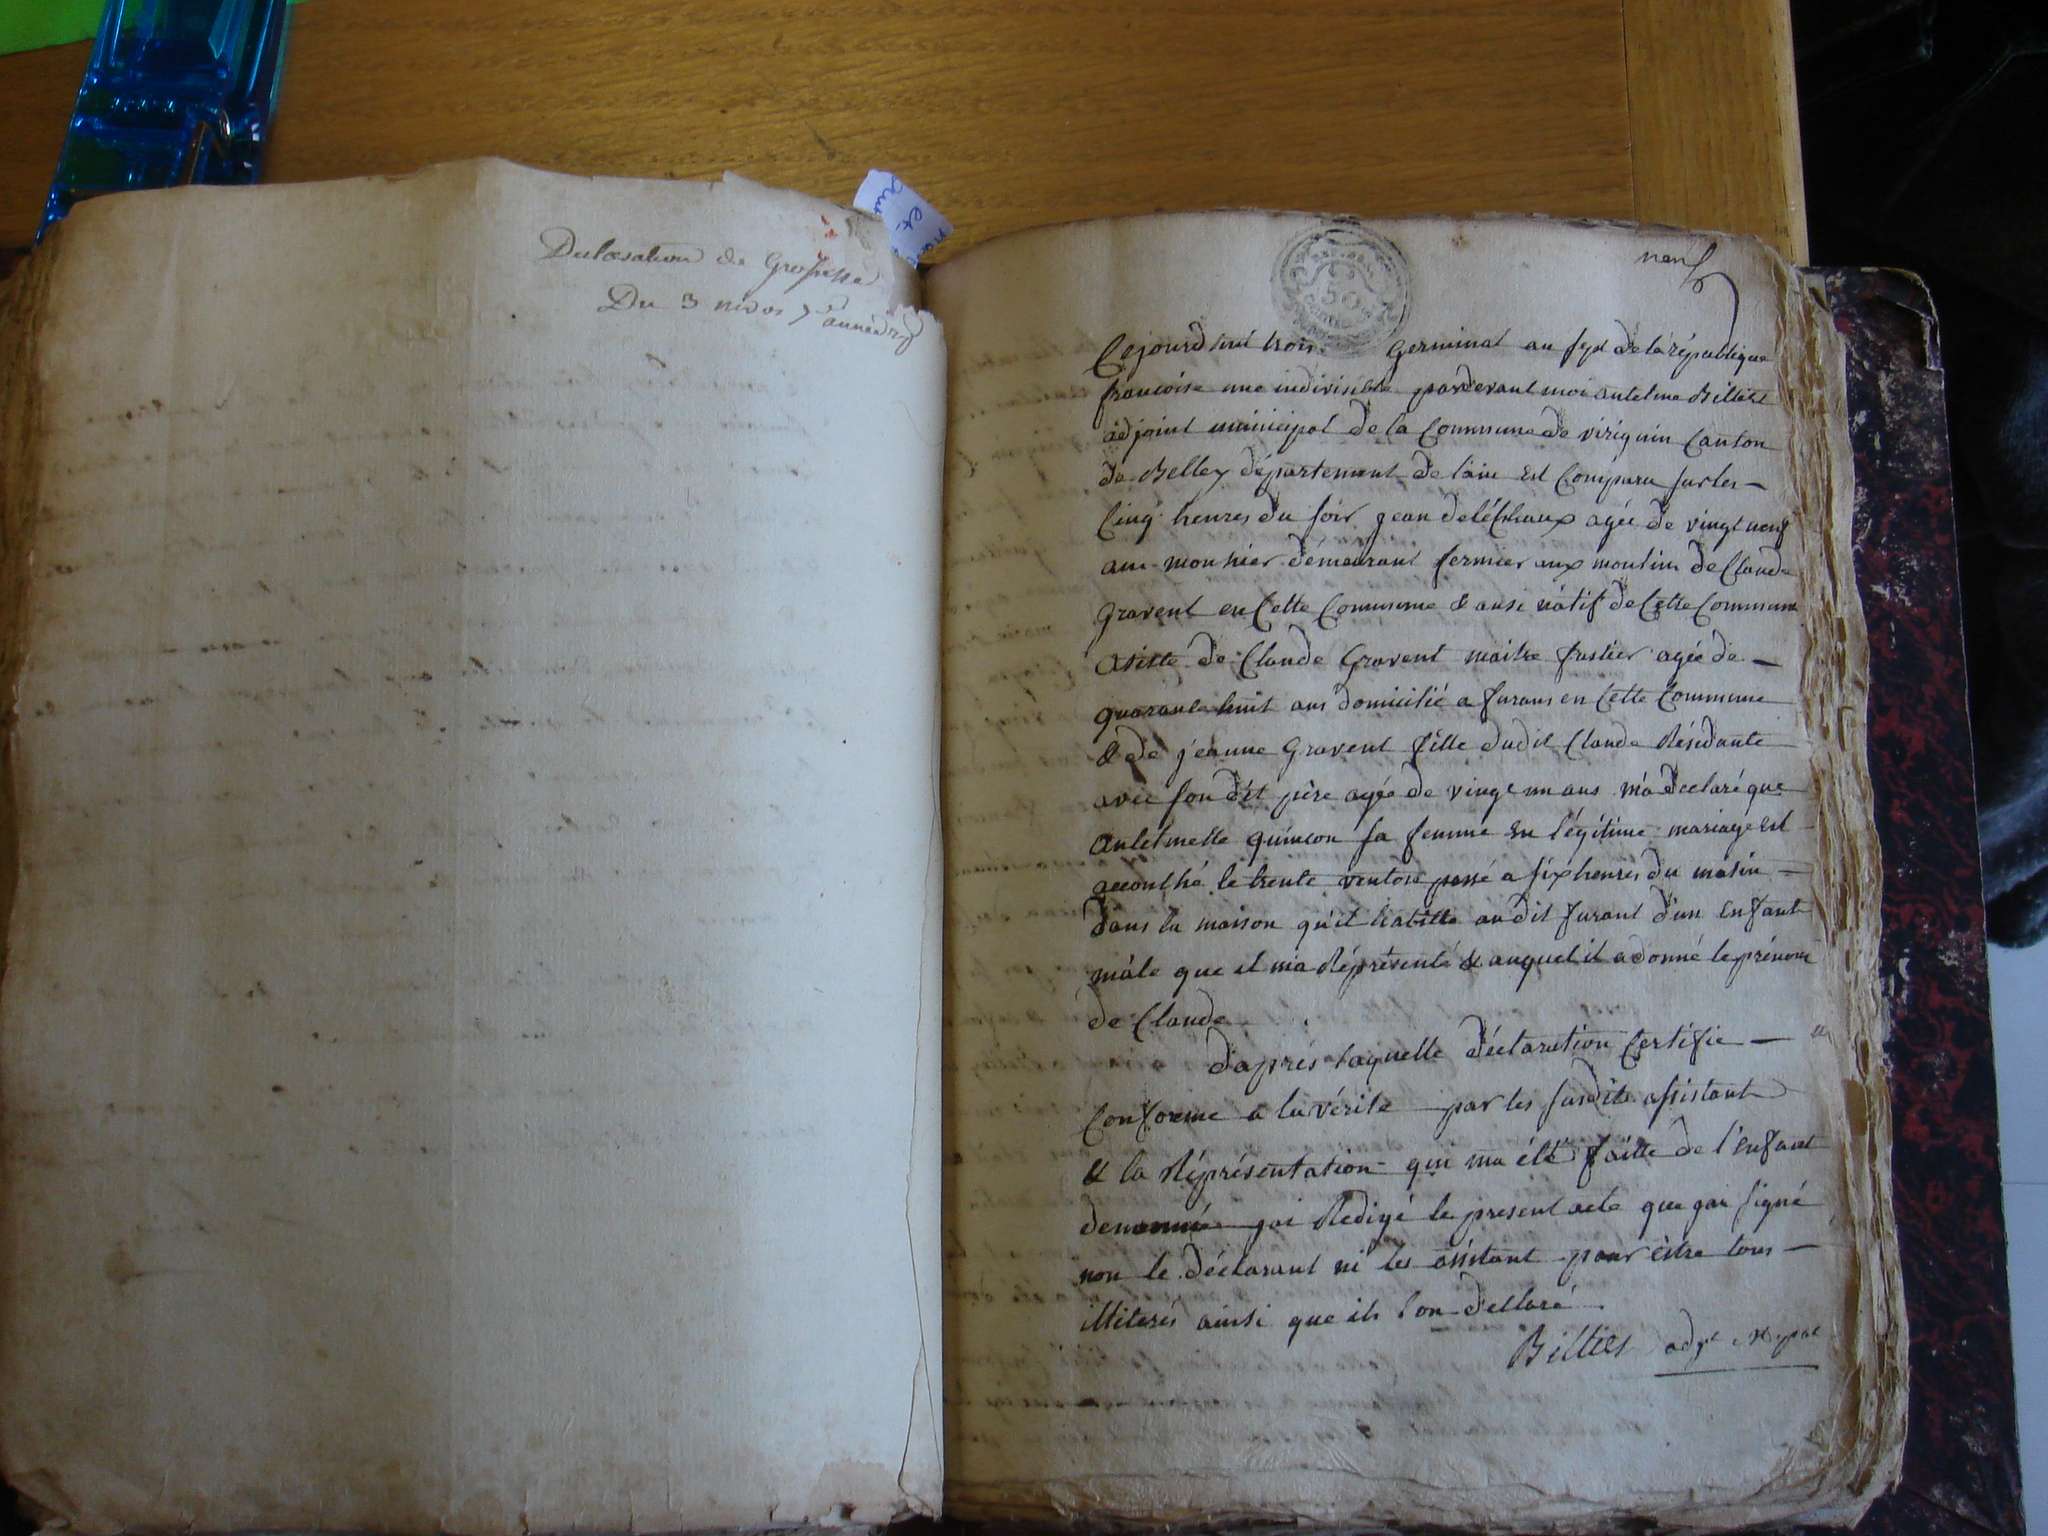 Declaration de Grossesse
Du 3 nivos 7 année
neuf
50
Cejourdhui trois Germinal an sept de la république
francoise une indivisible pardevant moi antelme Billiet
adjoint municipal de la Commune de virignin Canton
de Belley département de lain Est Comparu sur les
Cinq heures du soir jean agée de vingt neuf
ans monnier démeurant fermier aux moulins de Claude
Gravent en Cette Commune & ausi nátif de Cette Commune
asisté de Claude Gravent maitre agée de
quarante huit ans domicilié a furans en Cette Commune
& de jeanne Gravent fille dudit Claude Résidante
avec son dit père agée de vingt un ans má déclaré que
antelmette quincon sa femme En légitime mariage Est
acouché le trente ventose passé a six heures du matin
dans la maison qu'il habitte au dit furant d'un Enfant
mâle que il ma Réprésenté & auquel il a donné le prénom
de Claude
d'après laquelle déclaration Certifie
Conforme a la vérité par les susdits assistant
& la Réprésentation qui ma été faitte de l'Enfant
denommé jai Rédigé le present acte que jai signé
non le déclarant ni les asistant pour être tous
illiterés ainsi que ils l'on dellaré
Billiet adjt Mpal